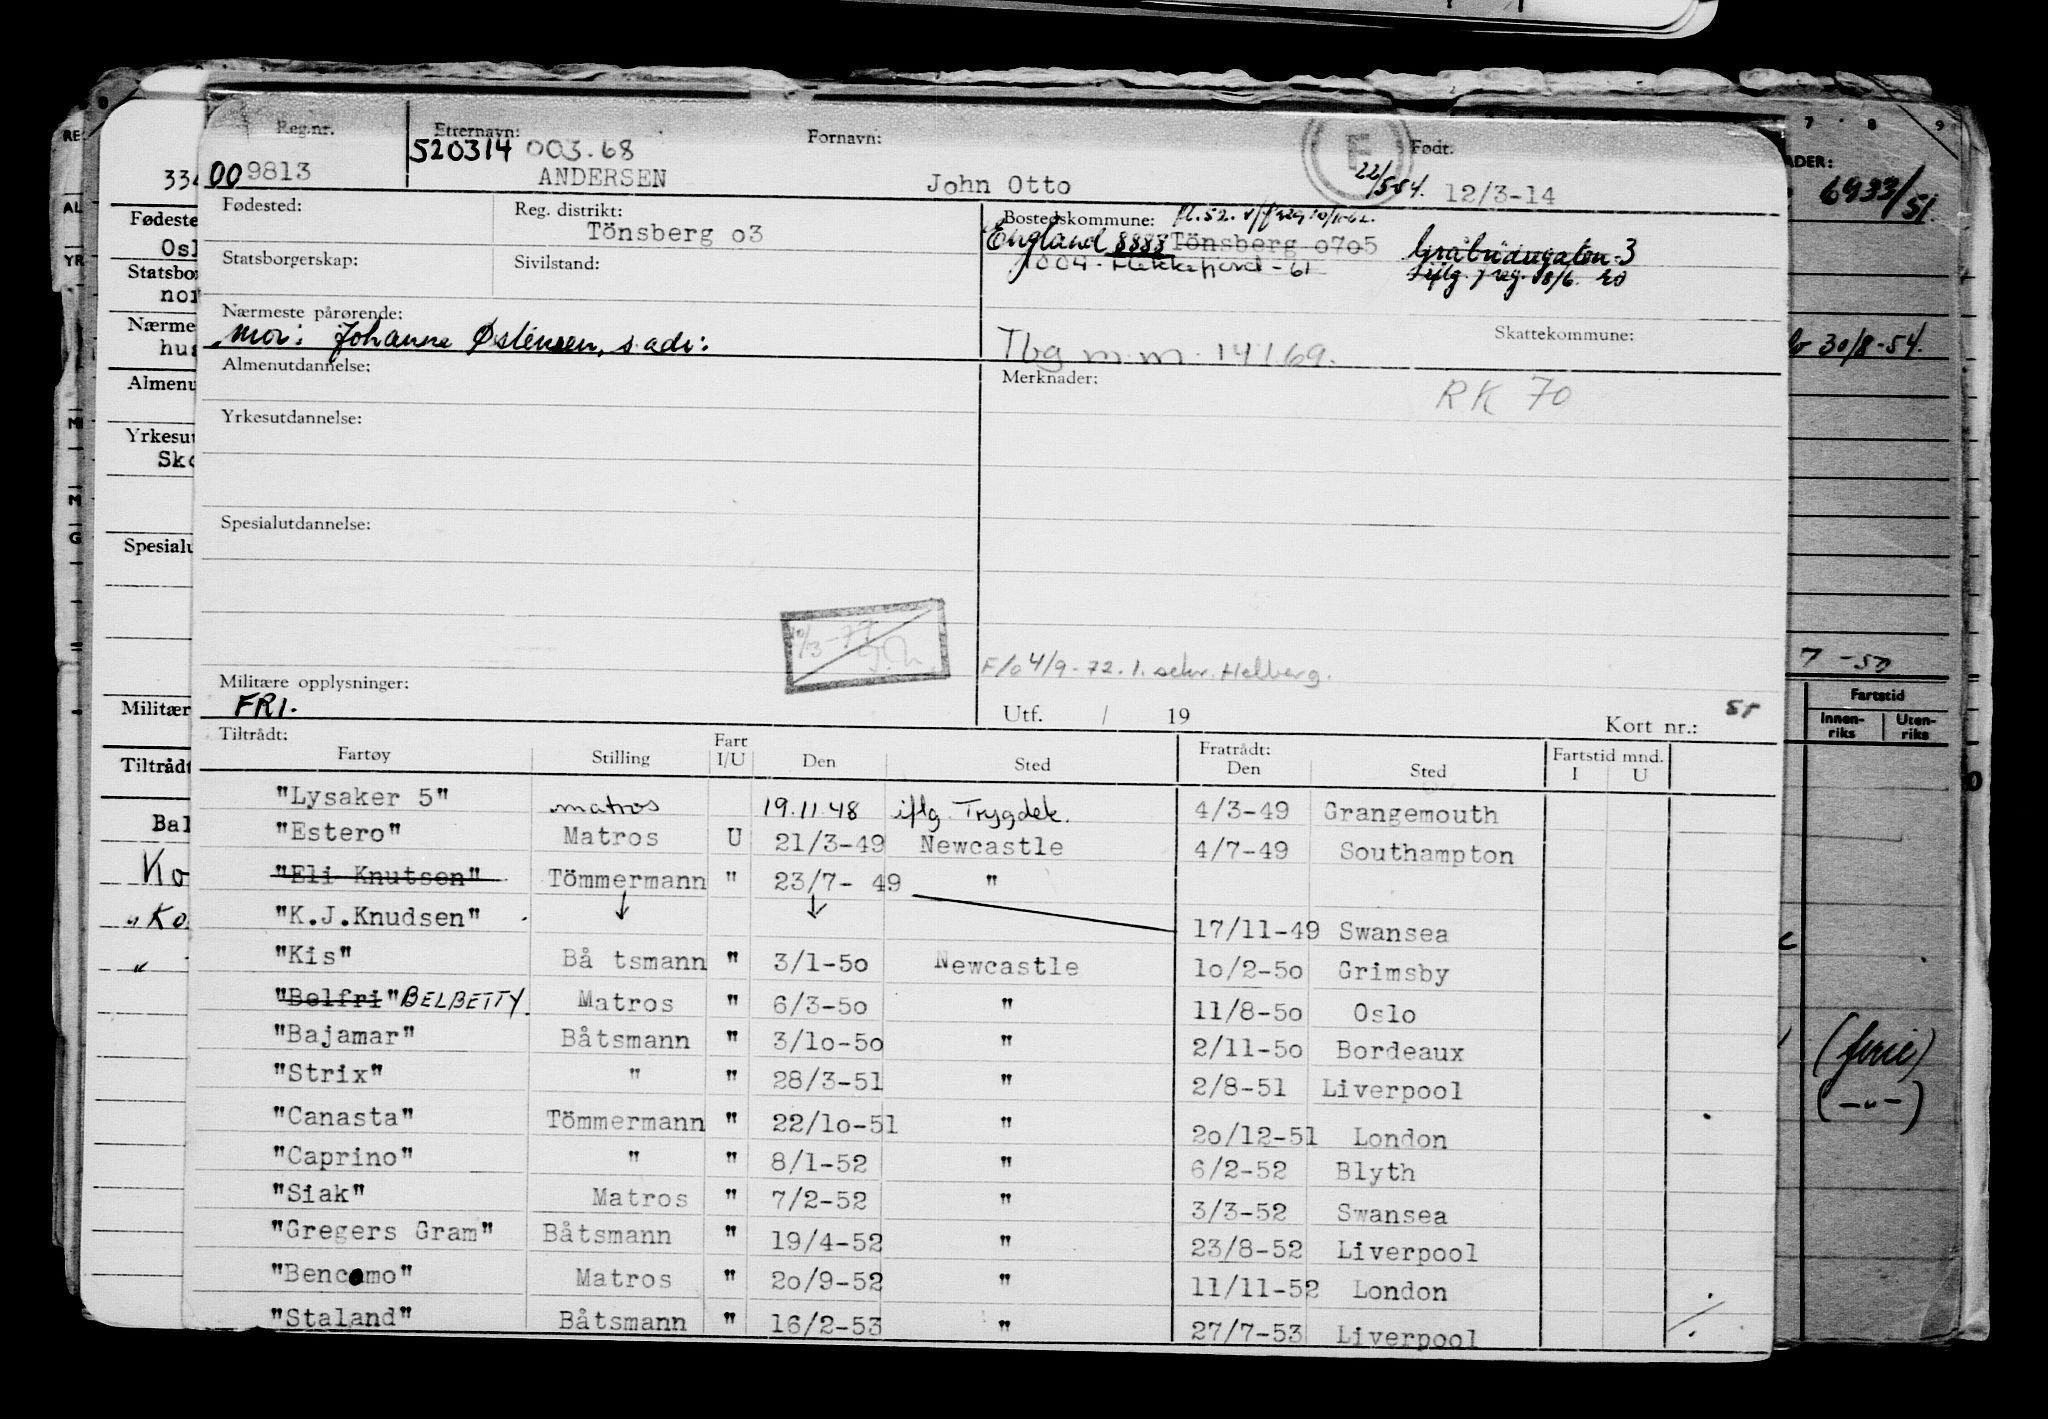 Reg.nr. Etternavn: Fornavn: Født.
520314 003.68
009813 ANDERSEN John Otto 22/5-54. 12/3-14
Fødested: Reg. distrikt: Bostedskommune:
Tönsberg o3 England 8888 Tönsberg o7o5
Statsborgerskap: Sivilstand: 1004 - Flekkefjord - 61
Nærmeste pårørende: Skattekommune:
mor: Johanne Østensen, s. adr: Tbg m.m. 14169.
Almenutdannelse: Merknader: RK 70
Yrkesutdannelse:
Spesialutdannelse:
F/o 4/9-72. 1. sekr. Helberg.
Militære opplysninger:
FRI. Utf. / 19 Kort nr.:
Tiltrådt: Fratrådt: Fartstid mnd.
Fartøy Stilling Fart I/U Den Sted Den Sted I U
"Lysaker 5" matros 19.11.48 iflg. Trygdek. 4/3-49 Grangemouth
"Estero" Matros U 21/3-49 Newcastle 4/7-49 Southampton
"Eli Knutsen" Tömmermann " 23/7- 49 "
"K.J.Knudsen" ↓ ↓ 17/11-49 Swansea
"Kis" Bå tsmann " 3/1-5o Newcastle 1o/2-5o Grimsby
"Belfri" BELBETTY. Matros " 6/3-5o " 11/8-5o Oslo
"Bajamar" Båtsmann " 3/1o-5o " 2/11-5o Bordeaux
"Strix" " " 28/3-51 " 2/8-51 Liverpool
"Canasta" Tömmermann " 22/1o-51 " 2o/12-51 London
"Caprino" " " 8/1-52 " 6/2-52 Blyth
"Siak" Matros " 7/2-52 " 3/3-52 Swansea
"Gregers Gram" Båtsmann " 19/4-52 " 23/8-52 Liverpool
"Bencomo" Matros " 2o/9-52 " 11/11-52 London
"Staland" Båtsmann " 16/2-53 " 27/7-53 Liverpool
6933/51.
30/8-54.
7 -50
Fartstid
Innen-riks Uten-riks
(ferie)
(-"-)